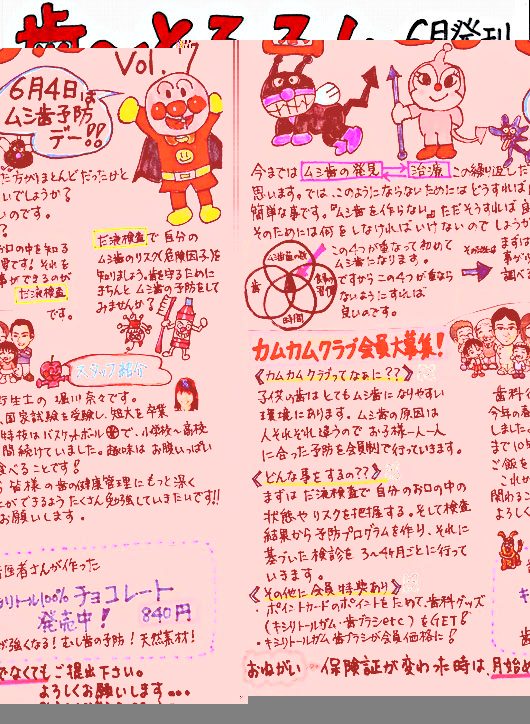 6月発刊
Vol. 7
6月4日は
ムシ歯予防
デー!!
いでしょうか?
いのです。
お口の中を知る
だ液検査
です。
だ液検査で自分の
ムシ歯のリスク(危険因子)を
知りましょう。歯を守るために
きちんとムシ歯の予防をして
みませんか?
スタッフ紹介
衛生士の 湯川 奈々です。
国家試験を受験し、短大を卒業
特技はバスケットボールで、小学校〜高校
間続けていました。趣味は お腹いっぱい
食べることです!
皆様の歯の健康管理にもっと深く
ができるよう たくさん勉強していきたいです!!
お願いします。
医者さんが作った
キシリトール100%チョコレート
発売中! 840円
が強くなる! むし歯の予防! 天然素材!
でなくてもご提出下さい。
よろしくお願いします...
今までは ムシ歯の発見 治療 この繰り返しだ
思います。では、このようにならないためにはどうすれば
簡単な事です。『ムシ歯を作らない』ただそうすれば
そのためには何をしなければいけないのでしょうか
ムシ歯の数
歯
食事の習慣
時間
この4つが重なって初めて
ムシ歯になります。
ですからこの4つが重なら
ないようにすれば
良いのです。
その為には
まずは
事が
調べる
カムカムクラブ会員大募集!
《カムカムクラブってなぁに??》
子供の歯はとてもムシ歯になりやすい
環境にあります。ムシ歯の原因は
人それぞれ違うので お子様一人一人
に合った予防を会員制で行っていきます。
《どんな事をするの???》
まずは だ液検査で 自分のお口の中の
状態やリスクを把握する。そして検査
結果から予防プログラムを作り、それに
基づいた検診を 3〜4ヶ月ごとに行って
いきます。
《その他に会員特典あり》
・ポイントカードのポイントをためて、歯科グッズ
(キシリトールガム・歯ブラシetc)をGET!
・キシリトールガム 歯ブラシが会員価格に!
おねがい 保険証が変わった時は、月始め
歯科
今年の
しました。
まで10
ご飯を
これか
関わる
よろしく